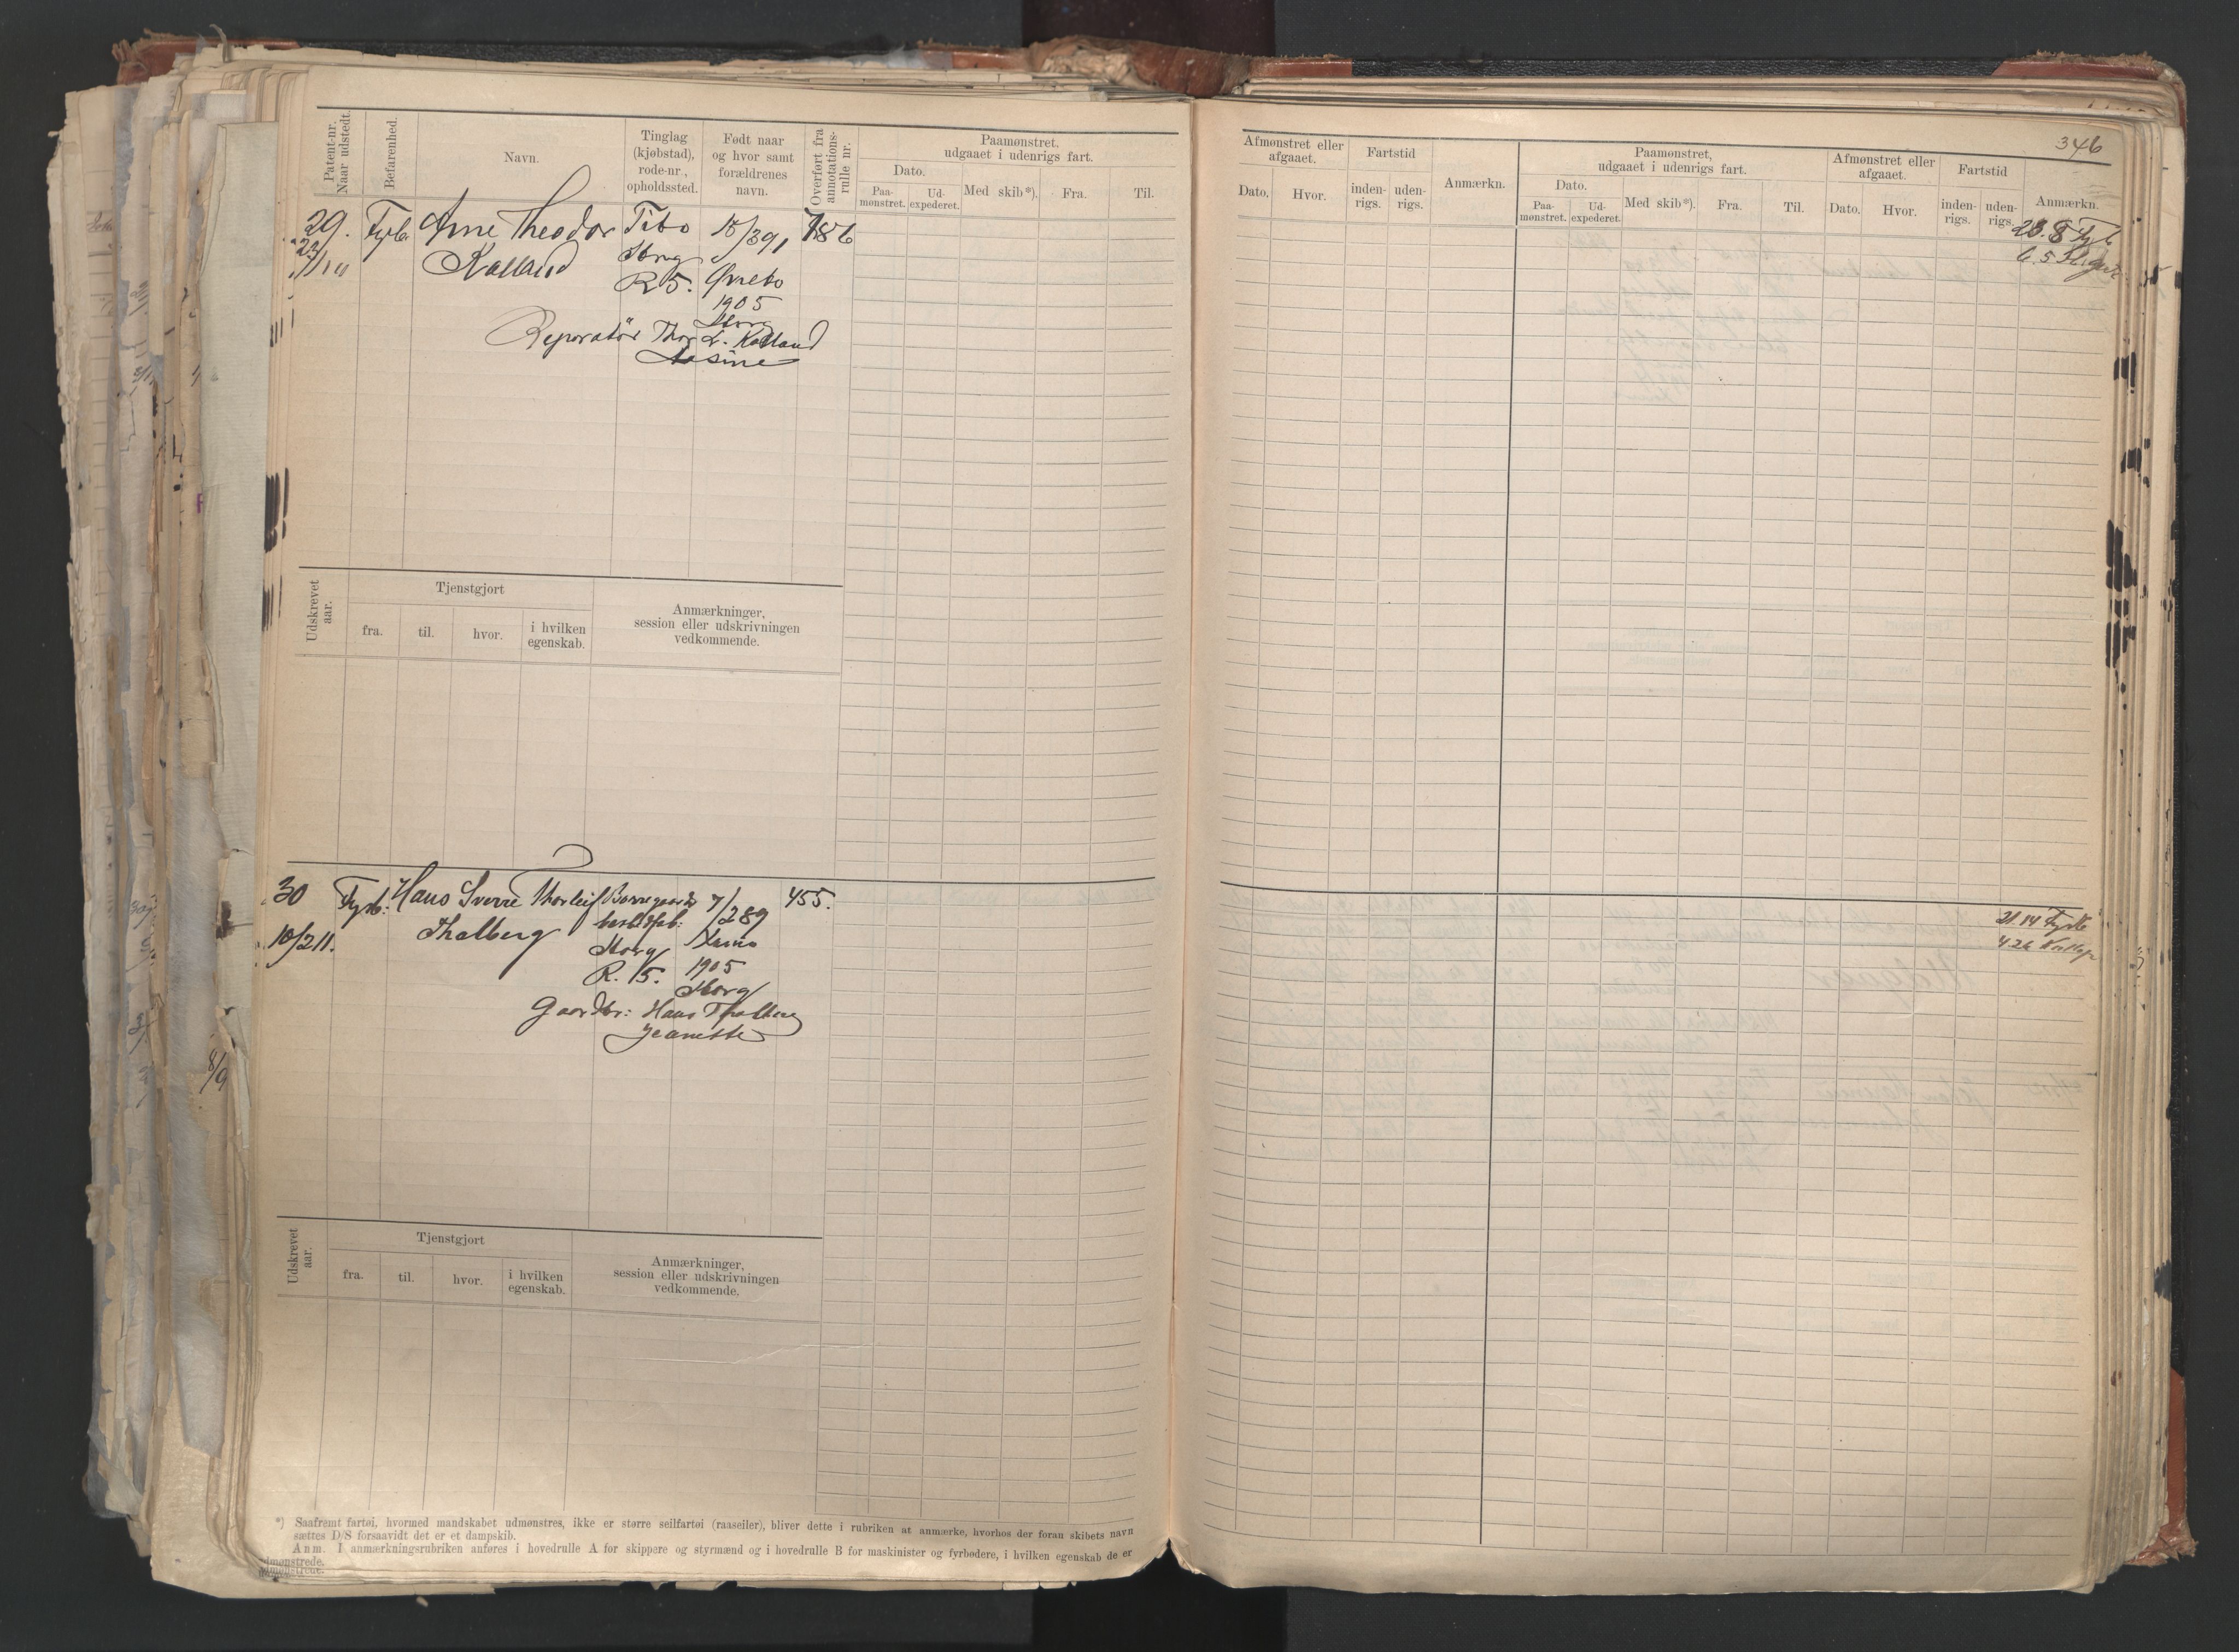 346
Patent-nr.
Naar udstedt.
Befarenhed.
Navn.
Tinglag
(kjøbstad),
rode-nr.,
opholdssted.
Født naar
og hvor samt
forældrenes
navn.
Overført fra
annotations-
rulle nr.
Paamønstret,
udgaaet i udenrigs fart.
Dato.
Paa-
mønstret.
Ud-
expederet.
Med skib*).
Fra.
Til.
29. Fyrb Arne Theodor
Kalland
R 5.
1905
Reparatør Thor L. Kalland
Udskrevet
aar.
Tjenstgjort
fra.
til.
hvor.
i hvilken
egenskab.
Anmærkninger,
session eller udskrivningen
vedkommende.
30 Fyrb: Hans Sverre Thorleif 7/289 455.
10/211. Thalberg
R. 15. 1905
Gaardbr: Hans Thalberg
Jeanette
Udskrevet
aar.
Tjenstgjort
fra.
til.
hvor.
i hvilken
egenskab.
Anmærkninger,
session eller udskrivningen
vedkommende.
*) Saafremt fartøi, hvormed mandskabet udmønstres, ikke er større seilfartøi (raaseiler), bliver dette i rubriken at anmærke, hvorhos der foran skibets navn
sættes D/S forsaavidt det er et dampskib.
Anm. I anmærkningsrubriken anføres i hovedrulle A for skippere og styrmænd og i hovedrulle B for maskinister og fyrbødere, i hvilken egenskab de er
udmønstrede.
Afmønstret eller
afgaaet.
Dato.
Hvor.
Fartstid
inden-
rigs.
uden-
rigs.
Anmærkn.
Paamønstret,
udgaaet i udenrigs fart.
Dato.
Paa-
mønstret.
Ud-
expederet.
Med skib*).
Fra.
Til.
Afmønstret eller
afgaaet.
Dato.
Hvor.
Fartstid
inden-
rigs.
uden-
rigs.
Anmærkn.
8/9